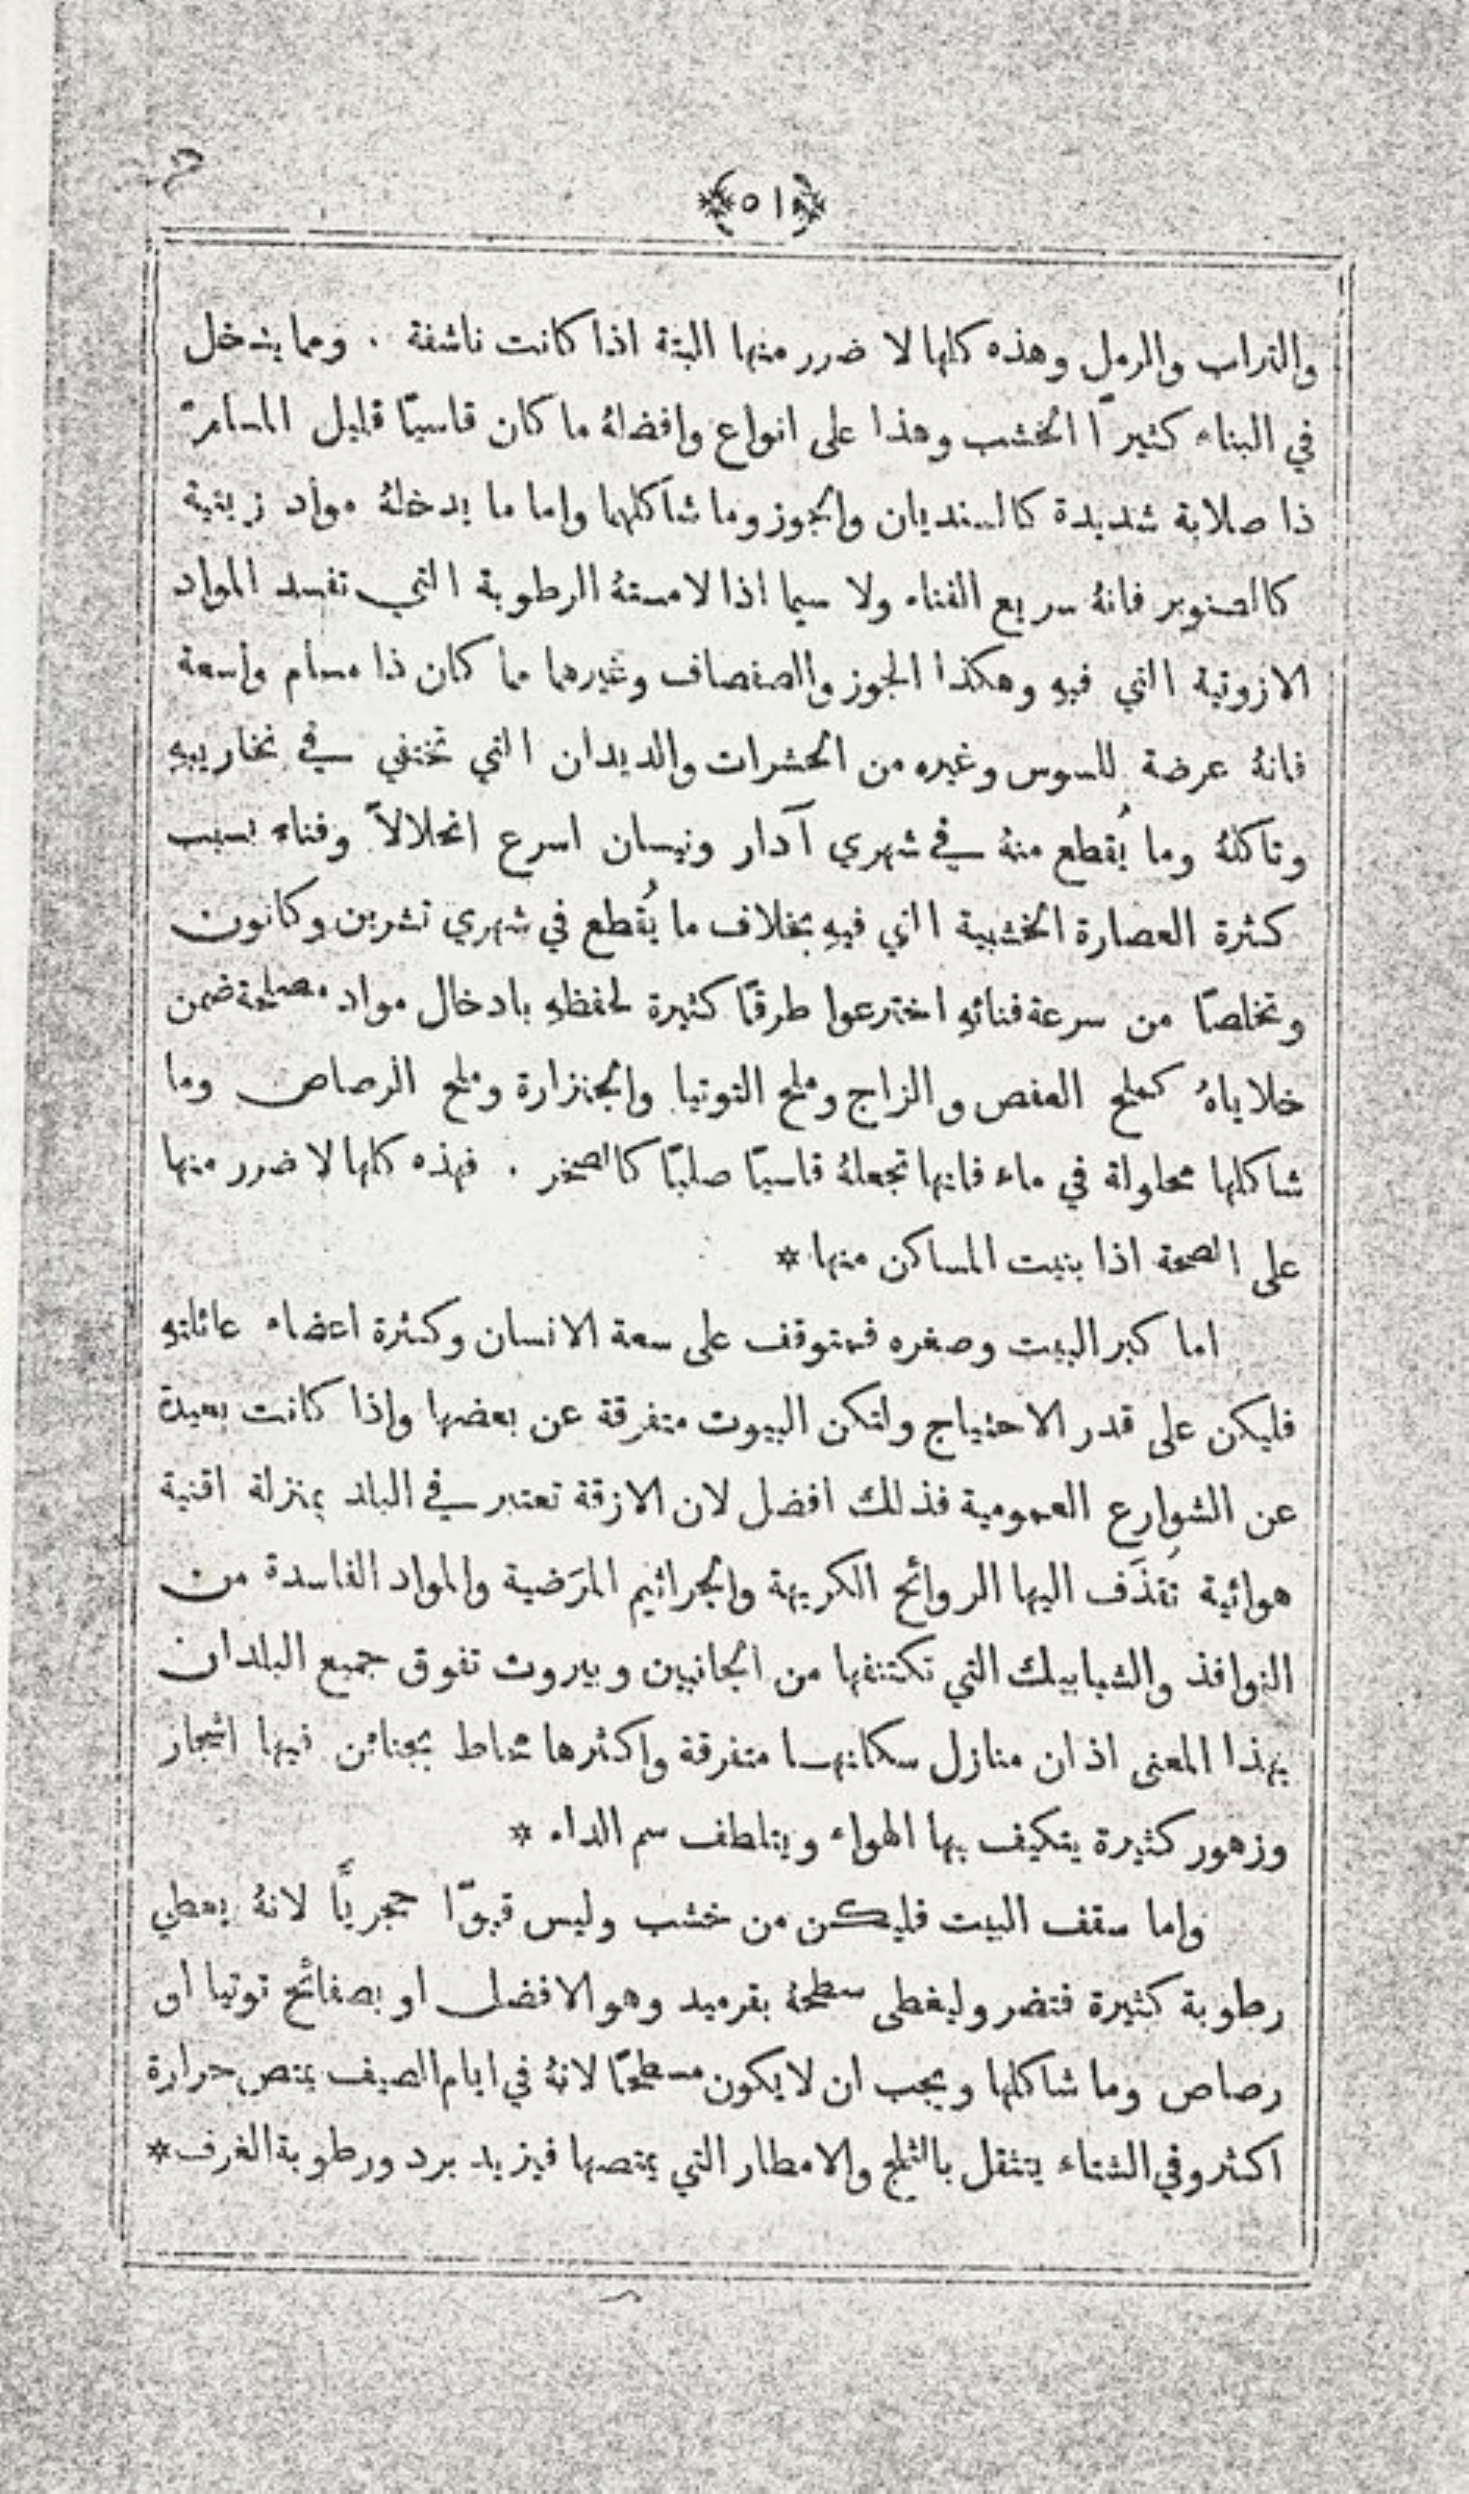 ﴿٥١﴾
والتراب والرمل وهذه كلها لا ضرر منها البتة اذا كانت ناشفة . ومما يدخل
في البناء كثيرًا الخشب وهذا على انواع وافضلهُ ما كان قاسيًا قليل المسامّ
ذا صلابة شديدة كالسنديان والجوز وما شاكلهما واما ما يدخلهُ مواد زيتية
كالصنوبر فانهُ سريع الفناء ولا سيما اذا لامستهُ الرطوبة التي تفسد المواد
الازوتية التي فيهِ وهكذا الجوز والصفصاف وغيرهما مما كان ذا مسام واسعة
فانهُ عرضة للسوس وغيره من الحشرات والديدان التي تختفي في نخاريبهِ
وتأكلهُ وما يُقطع منهُ في شهري آدار ونيسان اسرع انحلالاً وفناء بسبب
كثرة العصارة الخشبية التي فيهِ بخلاف ما يُقطع في شهري تشرين وكانون
وتخلصًا من سرعة فنائهِ اخترعوا طرقًا كثيرة لحفظهِ بادخال مواد مصلحة ضمن
خلاياهُ كملح العفص والزاج وملح التوتيا والجنزارة وملح الرصاص وما
شاكلها محلولة في ماء فانها تجعلهُ قاسيًا صلبًا كالصخر . فهذه كلها لا ضرر منها
على الصحة اذا بنيت المساكن منها *
اما كبر البيت وصغره فمتوقف على سعة الانسان وكثرة اعضاء عائلتهِ
فليكن على قدر الاحتياج ولتكن البيوت متفرقة عن بعضها واذا كانت بعيدة
عن الشوارع العمومية فذلك افضل لان الازقة تعتبر في البلد بمنزلة اقنية
هوائية تُقذَف اليها الروائح الكريهة والجراثيم المرَضية والمواد الفاسدة من
النوافذ والشبابيك التي تكتنفها من الجانبين وبيروت تفوق جميع البلدان
بهذا المعنى اذ ان منازل سكانها متفرقة واكثرها محاط بجنائن فيها اشجار
وزهور كثيرة يتكيف بها الهواء ويتلطف سم الداء *
واما سقف البيت فليكن من خشب وليس قبوًّا حجريًّا لانهُ يعطي
رطوبة كثيرة فتضر وليغطى سطحهُ بقرميد وهو الافضل او بصفائح توتيا او
رصاص وما شاكلها ويجب ان لا يكون مسطحًا لانهُ في ايام الصيف يمتص حرارة
اكثر وفي الشتاء يتثقل بالثلج والامطار التي يمتصها فيزيد برد ورطوبة الغرف *